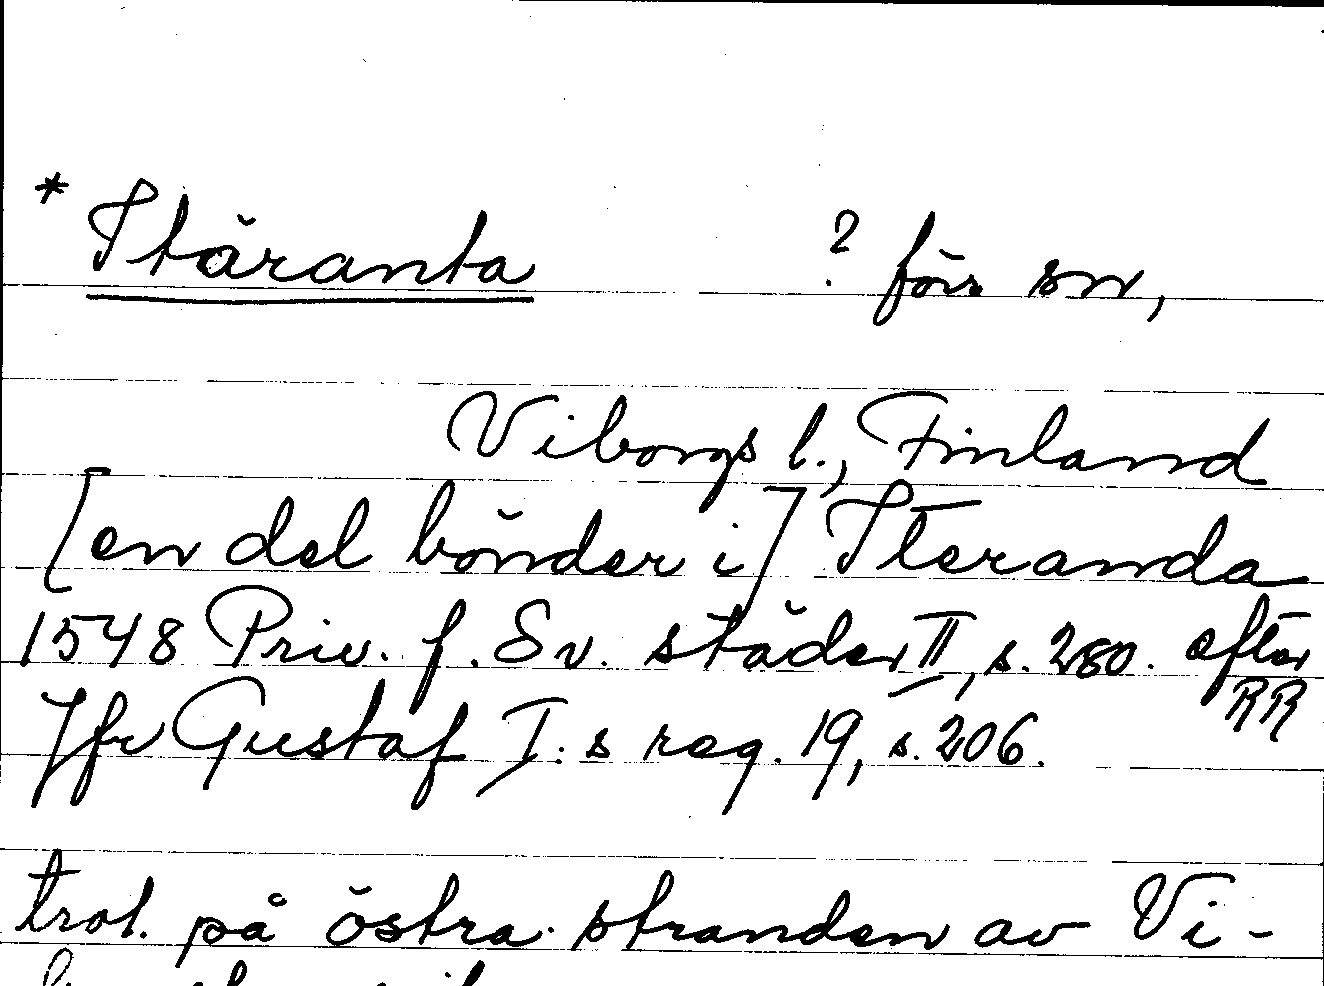 * Itäranta ? förs. sn,
Viborgs l., Finland
[en del bönder i] Iteranda
1548 Priv. f. Sv. städer II, s. 280. efter
RR
Jfr Gustaf I:s reg. 19, s. 206.
trol. på östra stranden av Vi-